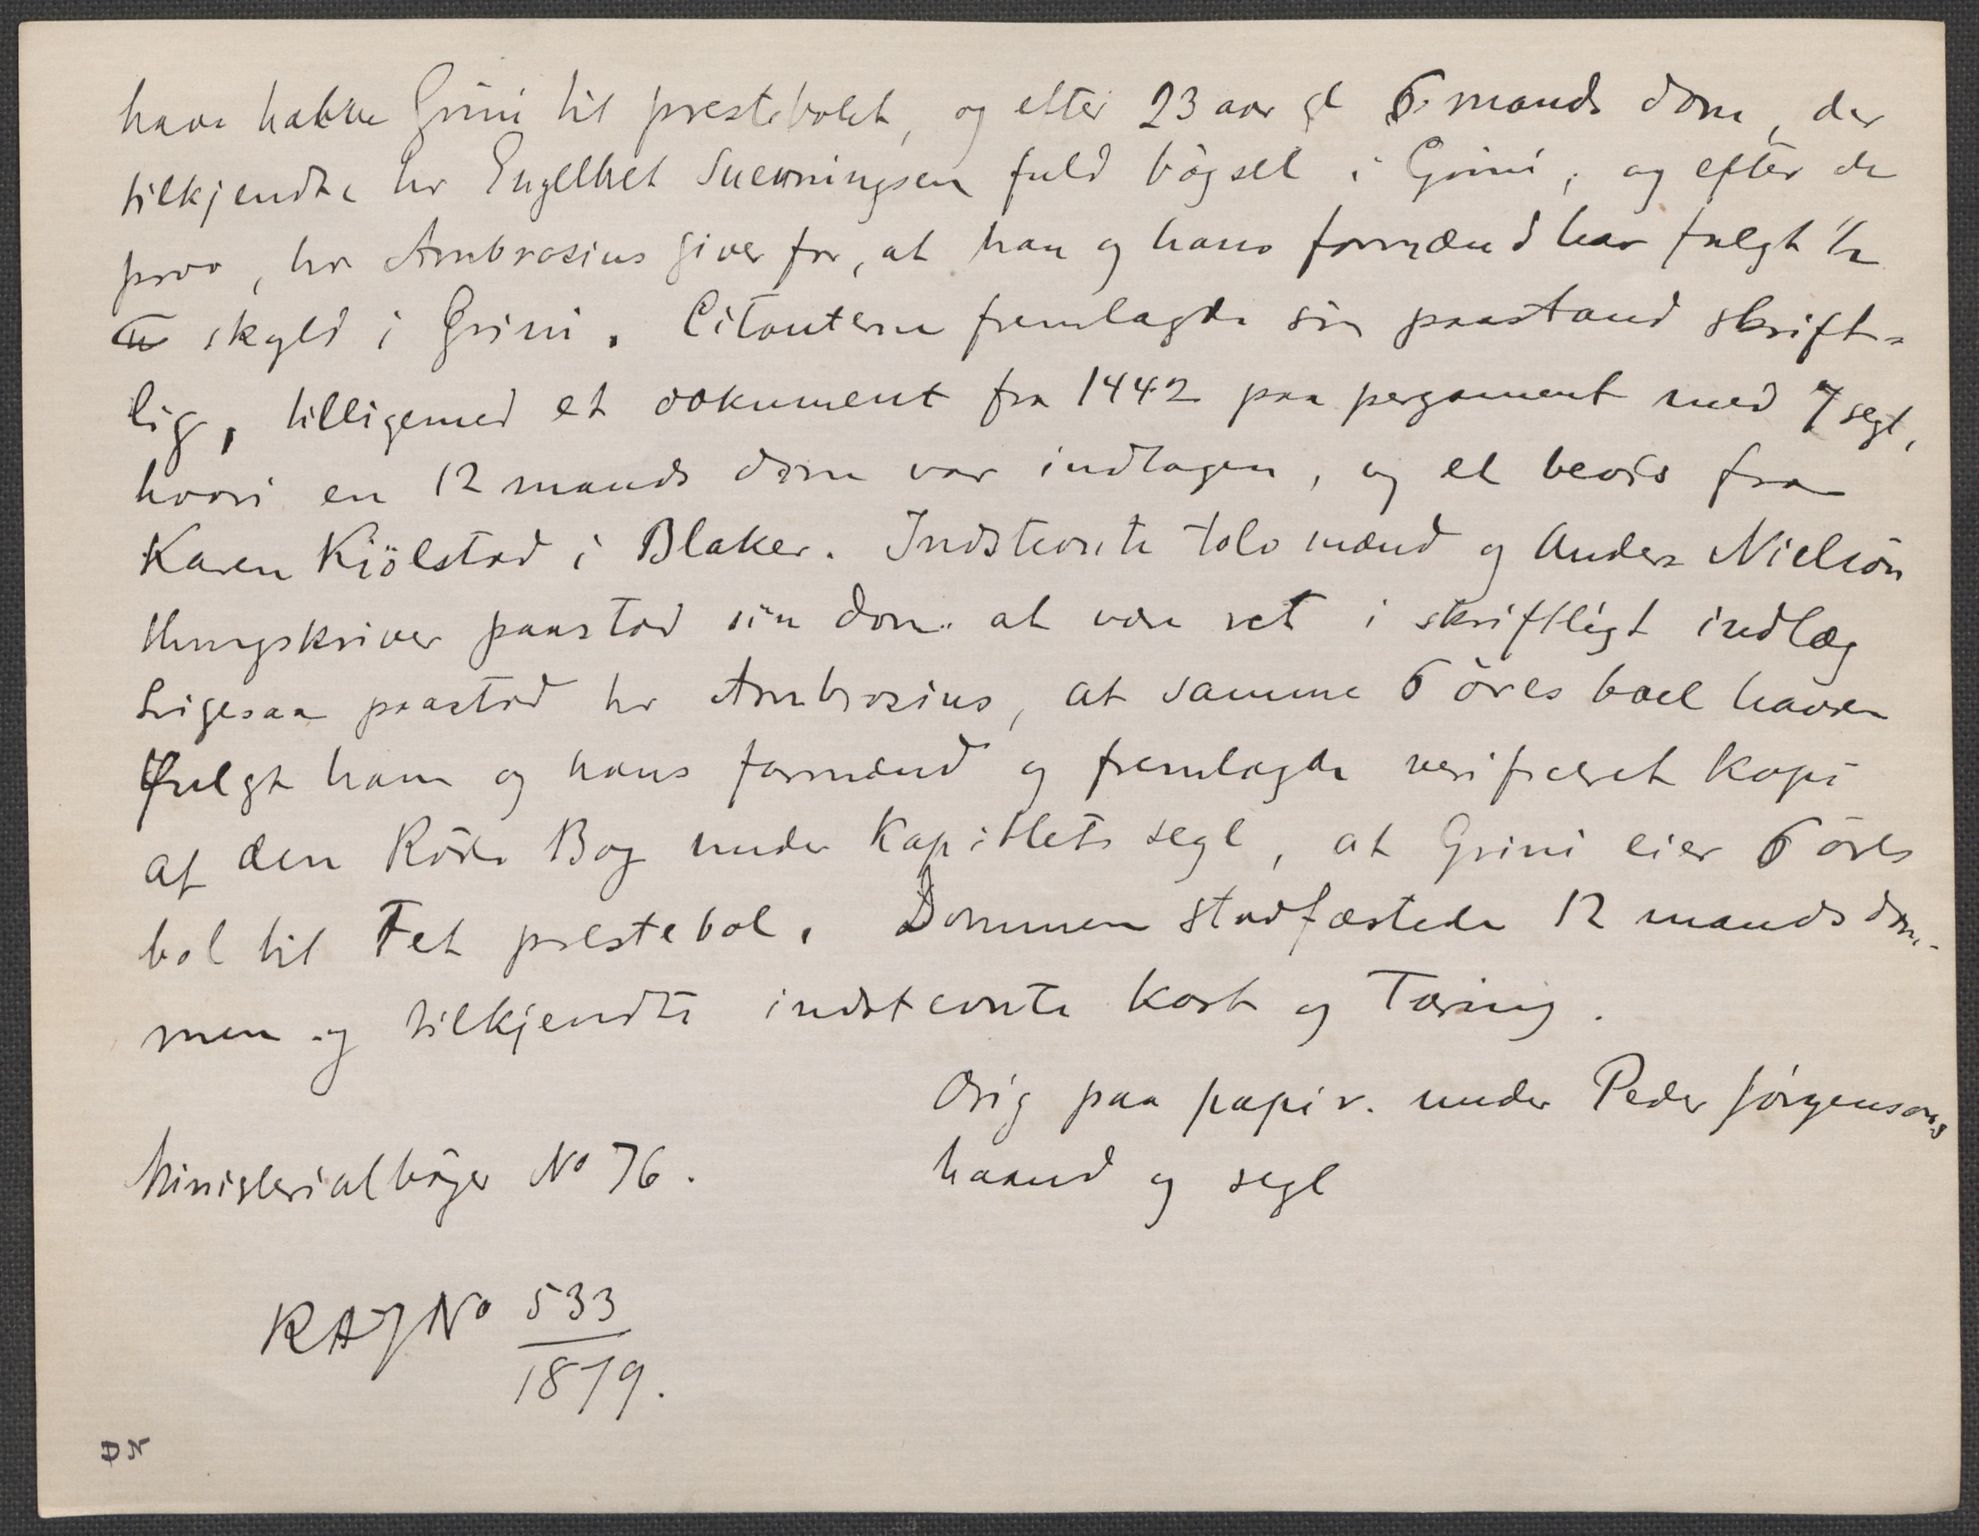 have havt Grini til prestebolet, og efter 23 aar gl 6 mands dom, der
tilkjendte hr Engelbret Suenningsen fuld bögsel i Grini, og efter de
prov, hr Ambrosius giver for, at han og hans formænd har fulgt ½
skyld i Grini. Citanterne fremlagde sin paastand skrift-
lig, tilligemed et dokument fra 1442 paa pergament med 7 segl,
hvori en 12 mands dom var indtagen, og et bevis fra
Karen Kiölstad i Blaker. Indstevnte tolv mænd og Anders Nielsön
thingskriver paastod sin dom at være ret i skriftligt indlæg
Ligesaa paastod hr Ambrosius, at samme 6 öres boel haver
fulgt ham og hans formænd og fremlagde verificeret kopi
af den Röde Bog under Kapitlets segl, at Grini eier 6 öres
bol til Fet prestebol. Dommen stadfæstede 12 mands dom-
men og tilkjendte indstevnte kost og Tæring.
Orig paa papir. under Peder Jörgensöns
haand og segl
Ministerialböger No 76.
RAJNo 533
1879.
DN